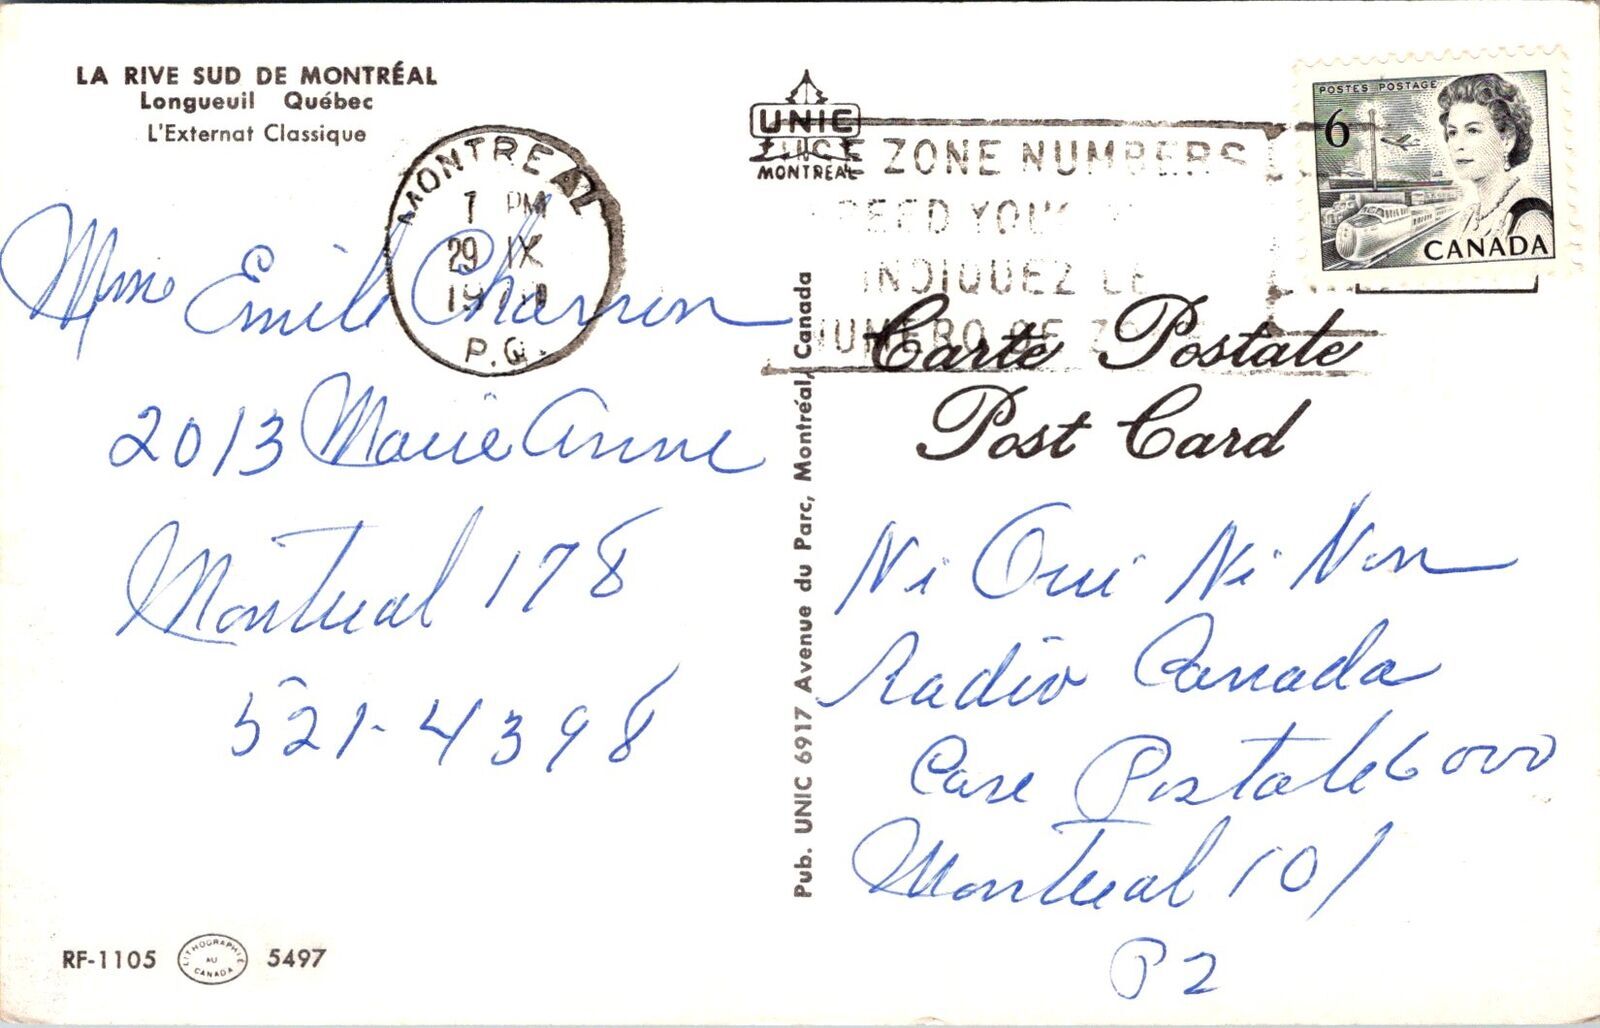 LA RIVE SUD DE MONTRÉAL
Longueuil Québec
L'Externat Classique
MONTREAL
7 PM
29 IX
P.Q.
UNIC
MONTREAL
ZONE NUMBERS
INDIQUEZ LE
NUMERO DE
POSTES POSTAGE
6
CANADA
Carte Postale
Post Card
Mme Emile Charron
2013 Marie Anne
Montreal 178
521-4398
Pub. UNIC 6917 Avenue du Parc, Montréal, Canada
Ni Oui Ni Non
Radio Canada
Case Postale 6000
Montreal 101
P2
RF-1105
LITHOGRAPHIE
AU
CANADA
5497